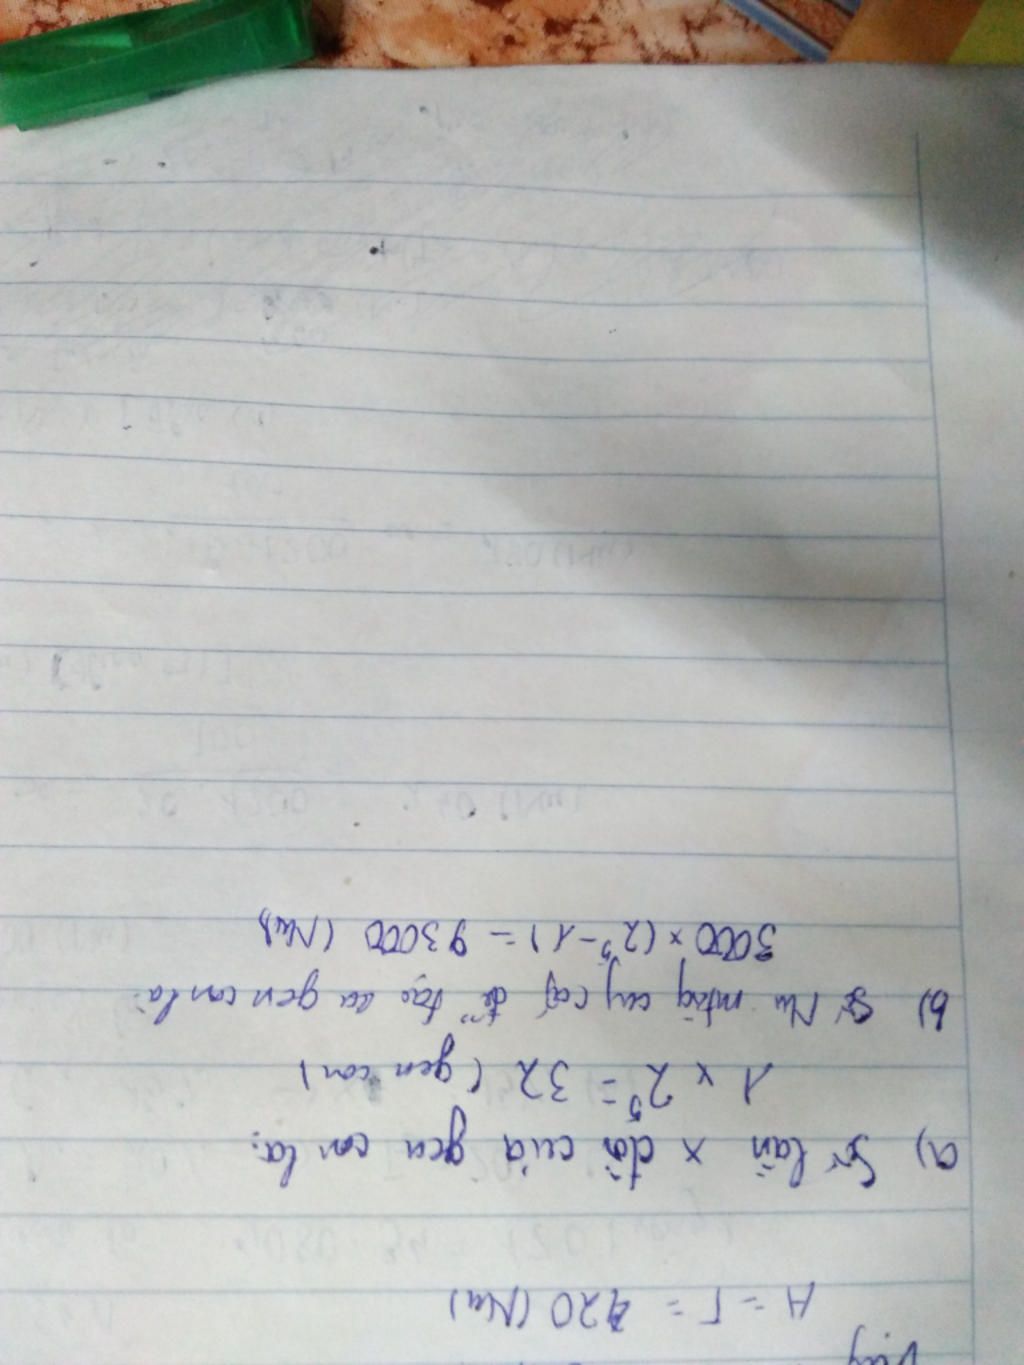 Vậy
A = T = 420 (Nu)
a) Số lần x đôi của gen con là:
1 x 2⁵ = 32 (gen con)
b) Số Nu mtrg c/cấp để tạo ra gen con là:
3000 x (2⁵ - 1) = 93000 (Nu)